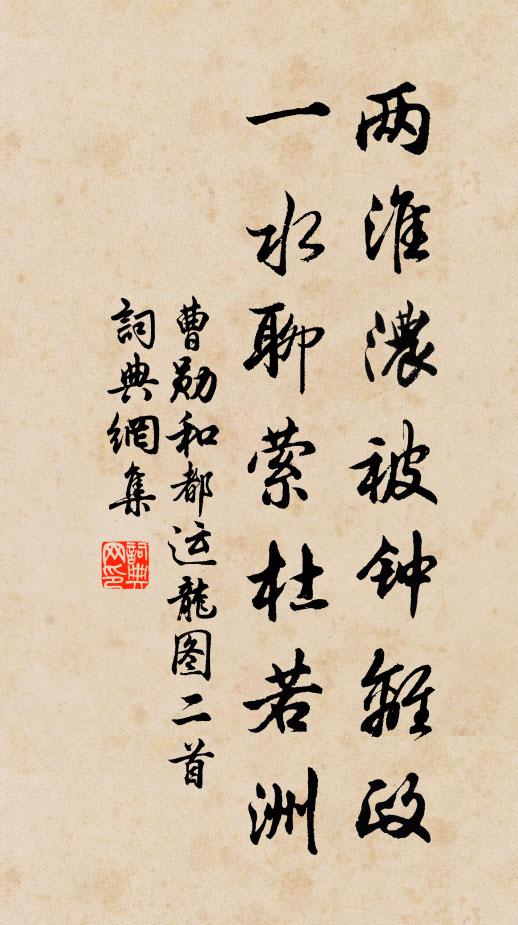 两淮浓被钟離政
一水聊萦杜若洲
曹勋和都运龍图二首
詞典網集
詞典网印